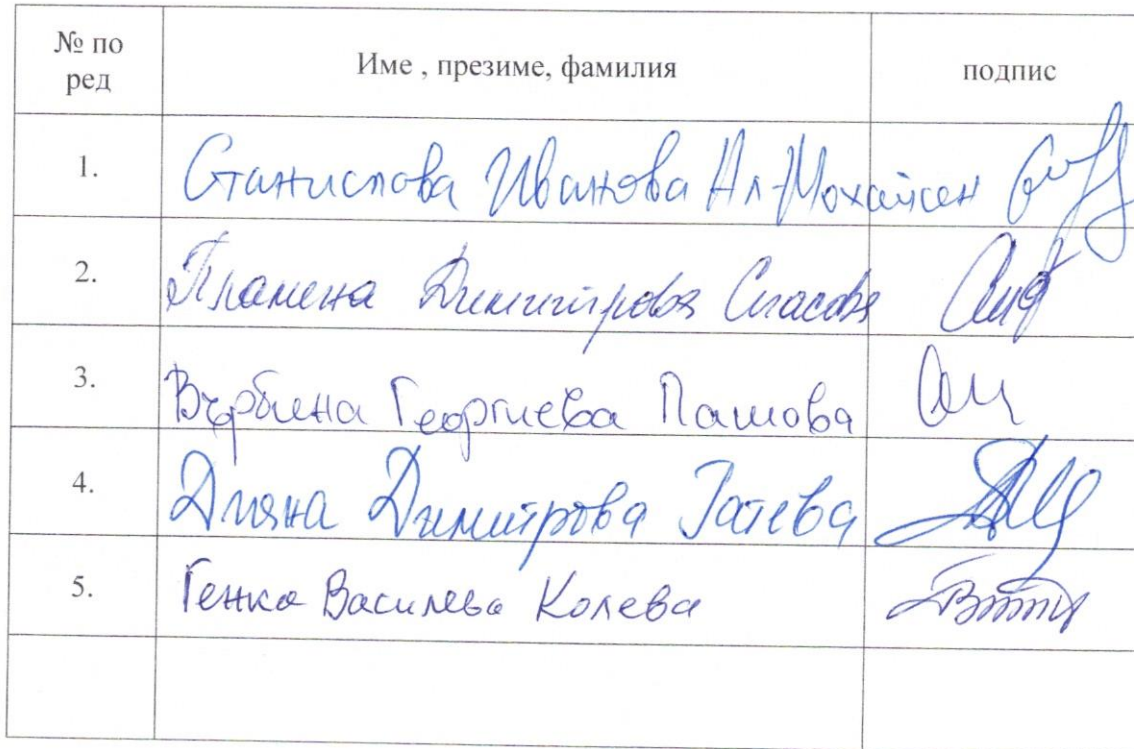 № по ред Име , презиме, фамилия подпис
1. Станислава Иванова Ал-Мохайсен
2. Пламена Димитрова Спасова
3. Върбина Георгиева Пашова
4. Дияна Димитрова Гатева
5. Генка Василева Колева